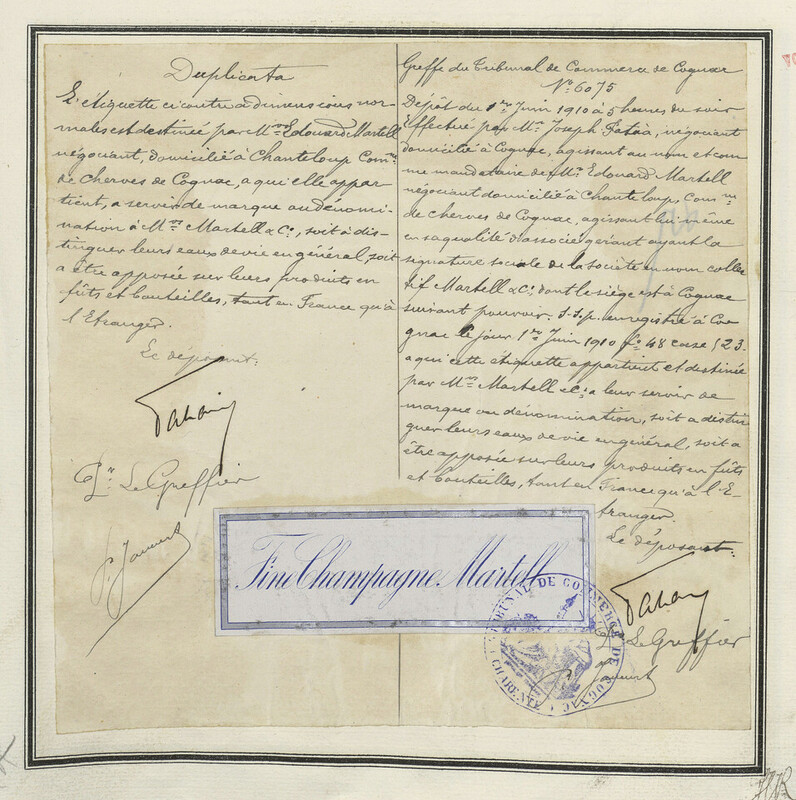 Duplicata
L'étiquette ci contre a dimensions nor-
males est destinée par Mr Edouard Martell
négociant, domicilié à Chanteloup Comne
de Cherves de Cognac, a qui elle appar
tient, a servir de marque ou dénomi-
nation à Mrs Martell & Co, soit à dis-
tinguer leurs eaux de vie en général, soit
a être apposée sur leurs produits en
fûts et bouteilles, tant en France qu'à
l'Etranger.
Le déposant:
Pr Le Greffier
Greffe du Tribunal de Commerce de Cognac
No 6075
Dépôt du 1er Juin 1910 à 5 heures du soir
Effectué par Mr Joseph négociant
domicilié à Cognac, agissant au nom et com
me mandataire de Mr Edouard Martell
négociant domicilié à Chanteloup, Comne
de Cherves de Cognac, agissant lui même
en sa qualité d'associé gérant ayant la
signature sociale de la société en nom collec
tif Martell & Co dont le siège est à Cognac
suivant pouvoir S.S.p. enregistré à Co
gnac le jour 1er Juin 1910 fo 48 case 523.
a qui cette étiquette appartient et destinée
par Mrs Martell & Co a leur servir de
marque ou dénomination, soit a distin
guer leurs eaux de vie en général, soit a
être apposée sur leurs produits en fûts
et bouteilles, tant en France qu'à l'E-
tranger.
Le déposant:
Pr Le Greffier
Fine Champagne Martell
TRIBUNAL DE COMMERCE DE COGNAC
CHARENTE